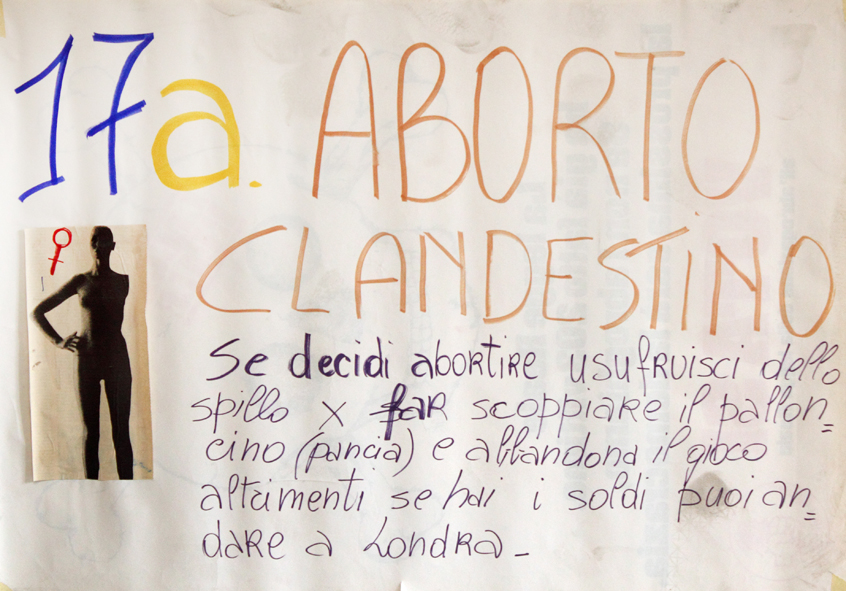 17a. ABORTO
CLANDESTINO
Se decidi abortire usufruisci dello
spillo x far scoppiare il pallon=
cino (pancia) e abbandona il gioco
altrimenti se hai i soldi puoi an=
dare a Londra -